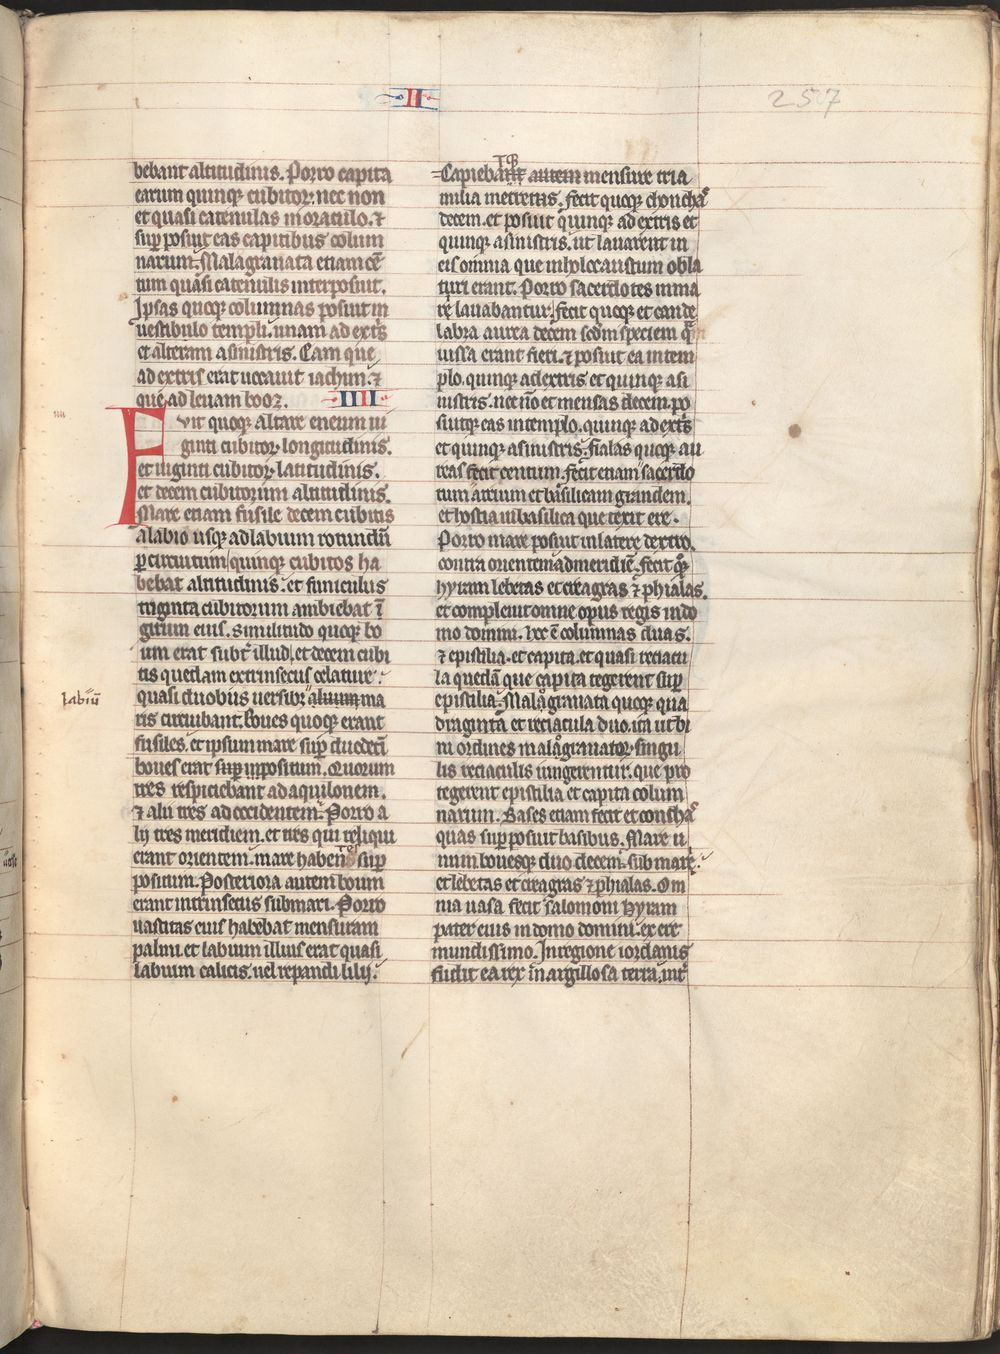 II
257
bebant altitudinis. Porro capita
earum quinq; cubitoꝝ. nec non
et quasi catenulas in oraculo. ⁊
sup̱ posuit eas capitibus colum
narum. Malagranata etiam cē
tum quasi catenulis interposuit.
Ipsas quoq; columnas posuit in
uestibulo templi. unam ad extˢ
et alteram a sinistris. Eam que
ad extris erat uocauit iachin. ⁊
que ad leuam booz. IIII
Fuit quoq; altare eneum ui
ginti cubitoꝝ longitudinis.
et uiginti cubitoꝝ latitudinis.
et decem cubitorum altitudinis.
Mare etiam fusile decem cubitis
a labio usq; ad labium rotundū
ꝑ circuitum quinq; cubitos ha
bebat altitudinis. et funiculus
triginta cubitorum ambiebat ī
girum eius. Similitudo quoq; bo
um erat subtˢ illud. et decem cubi
tis quedam extrinsecus celature.
quasi duobus uersibꝫ aluum ma
labiū
ris circuibant. Boues quoq; erant
fusiles. et ipsum mare sup̱ duodecī
boues erat sup̱ inpositum. Quorum
tres respiciebant ad aquilonem.
⁊ alii tres ad occidentem. Porro a
lij tres meridiem. et tres qui reliqui
erant orientem. mare habentes sup̱
positum. Posteriora autem boum
erant intrinsecus sub mari. Porro
uastitas eius habebat mensuram
palmi. et labium illius erat quasi
labium calicis. uel repandi lilij.
Capiebatq; autem mensure tria
milia metretas. fecit quoq; chonchaˢ
decem. et posuit quinq; ad extris et
quinq; a sinistris. ut lauarent in
eis omnia que in holocaustum obla
turi erant. Porro sacerdotes in ma
re lauabantur. fecit quoq; et cande
labra aurea decem scdm speciem qᵃ
iussa erant fieri. ⁊ posuit ea in tem
plo. quinq; ad extris et quinq; a si
nistris. nec nō et mensas decem. po
suitq; eas in templo. quinq; ad extˢ
et quinq; a sinistris. fialas quoq; au
reas fecit centum. fecit etiam sacerdo
tum atrium et basilicam grandem.
et hostia in basilica que texit ere.
Porro mare posuit in latere dextro.
contra orientem ad meridiē. fecit
hyram lebetas et creagras ⁊ phialas.
et compleuit omne opus regis in do
mo domini. hec ē columnas duas.
⁊ epistilia. et capita. et quasi retiacu
la quedā que capita tegerent sup̱
epistilia. Malagranata quoq; qua
draginta et retiacula duo. ita ut bi
ni ordines malagranatoꝝ singu
lis retiaculis iungerentur. que pro
tegerent epistilia et capita colum
narum. Bases etiam fecit et conchaˢ
quas sup̱ posuit basibus. Mare u
num bouesq; duo decem. sub mare.
et lebetas et creagras ⁊ phialas. Om
nia uasa fecit salomoni hyram
pater eius in domo domini. ex ere
mundissimo. In regione iordanis
fudit ea rex in argillosa terra. intˢ